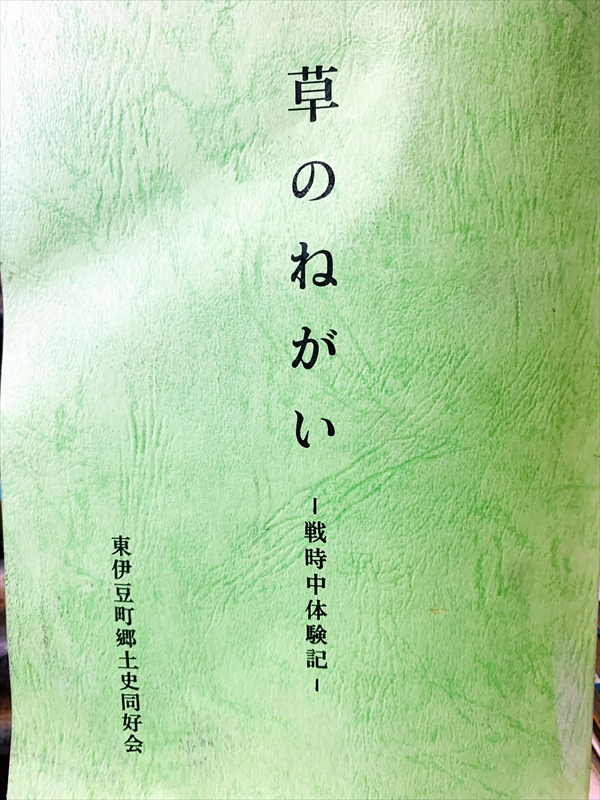 草のねがい
ー戦時中体験記ー
東伊豆町郷土史同好会